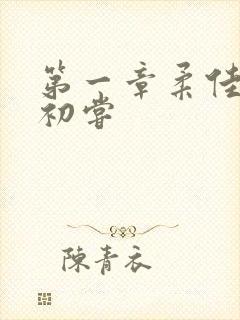 第一章柔佳
初嘗
陳青衣